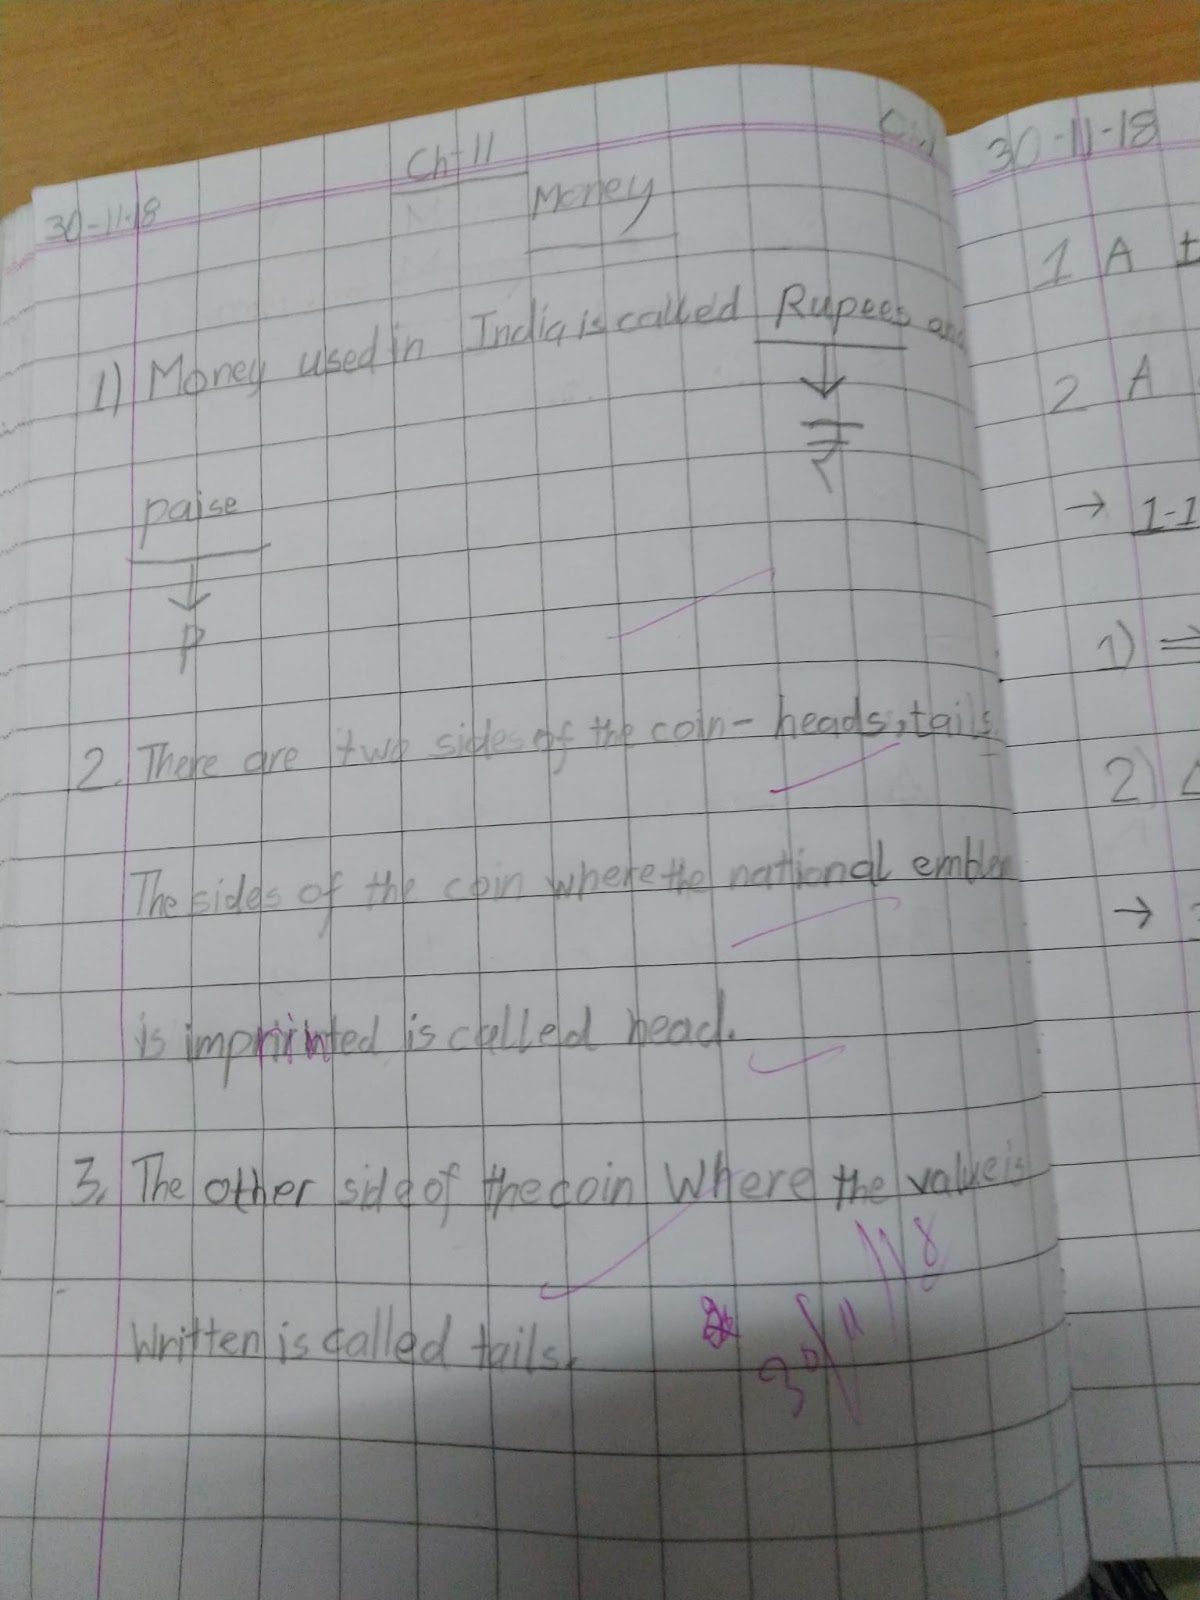 Ch-11
30-11-18
Money
1) Money used in India is called Rupees and
↓
₹
paise
↓
P
2. There are two sides of the coin - heads, tails.
The sides of the coin where the national emblem
is imprinted is called head.
3. The other side of the coin where the value is
written is called tails.
30/11/18
30-11-18
1 A
2 A
→ 1-1
1) ⇒
2)
→